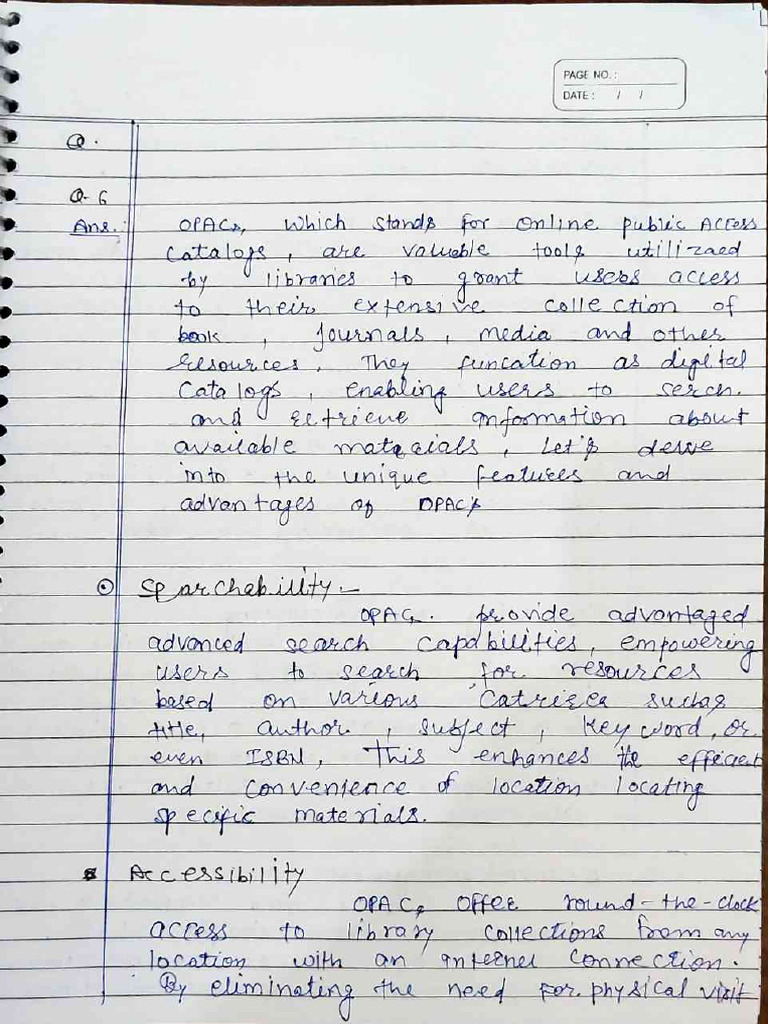 PAGE NO.:
DATE: / /
Q.
Q-6
Ans.: OPACs, which stands for online public Access
catalogs, are valuable tools utilizaed
by libraries to grant users access
to their extensive collection of
book, Journals, media and other
resources. They funcation as digital
catalogs, enabling users to serch.
and retrieve information about
available materials, Let's delve
into the unique features and
advantages of OPACs
Searchability -
OPACs. provide advantaged
advanced search capabilities, empowering
users to search for resources
based on various suchas
title, author, subject, keyword, or
even ISBN, This enhances the efficient
and convenience of location locating
specific materials.
Accessibility
OPACs offer round-the-clock
access to library collections from any
location with an internet connection.
By eliminating the need for physical visit